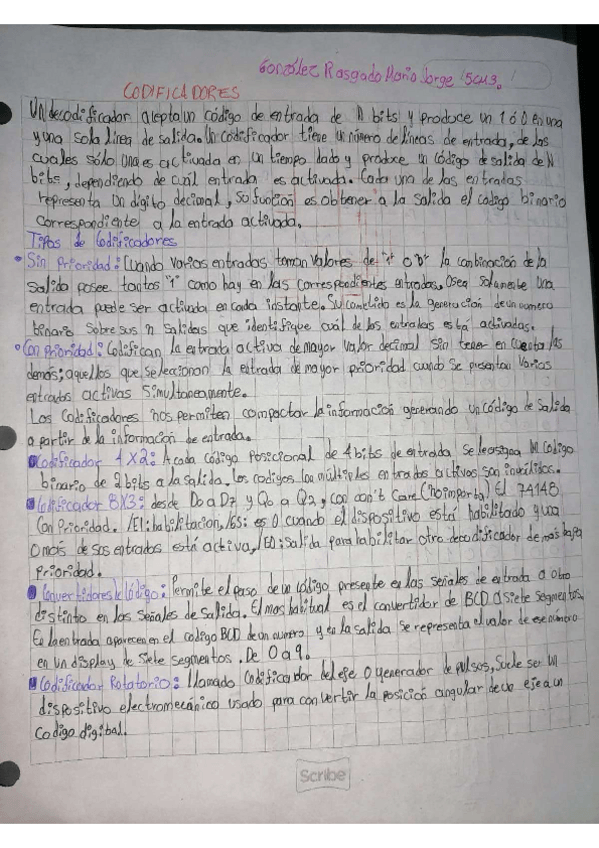 González Rasgado Mario Jorge 5CM3.
CODIFICADORES
Un decodificador acepta un código de entrada de N bits y produce un 1 ó 0 en una
y una sola línea de salida. Un codificador tiene un número de líneas de entrada, de las
cuales sólo una es activada en un tiempo dado y produce un código de salida de N
bits, dependiendo de cuál entrada es activada. Cada una de las entradas
representa un dígito decimal, su función es obtener a la salida el código binario
correspondiente a la entrada activada.
Tipos de Codificadores
• Sin Prioridad: Cuando varios entradas toman valores de "1" o "0" la combinación de la
salida posee tantos "1" como hay en las correspondientes entradas. Osea solamente una
entrada puede ser activada en cada instante. Su cometido es la generación de un número
binario sobre sus n salidas que identifique cuál de las entradas está activadas.
• Con Prioridad: Codifican la entrada activa de mayor valor decimal sin tener en cuenta las
demás; aquellos que seleccionan la entrada de mayor prioridad cuando se presentan varias
entradas activas simultaneamente.
Los Codificadores nos permiten compactar la información generando un código de salida
a partir de la información de entrada.
Codificador 4X2: A cada código posicional de 4 bits de entrada se le asigna un código
binario de 2 bits a la salida. Los codigos con múltiples entradas activos son inválidos.
Codificador 8X3: desde D0 a D7 y Q0 a Q2, con don't care (no importa) El 74148
con Prioridad. /EI: habilitacion, /GS: es 0 cuando el dispositivo está habilitado y una
o más de sus entradas está activa, /EO: salida para habilitar otro decodificador de más baja
prioridad.
Convertidores de código: Permite el paso de un código presente en las señales de entrada a otro
distinto en las señales de salida. El mas habitual es el convertidor de BCD a siete segmentos.
En la entrada aparece en el codigo BCD de un numero y en la salida se representa el valor de ese número
en un display de siete segmentos. De 0 a 9.
Codificador Rotatorio: Llamado codificador del eje o generador de pulsos, suele ser un
dispositivo electromecánico usado para convertir la posición angular de un eje a un
Codigo digital.
Scribe